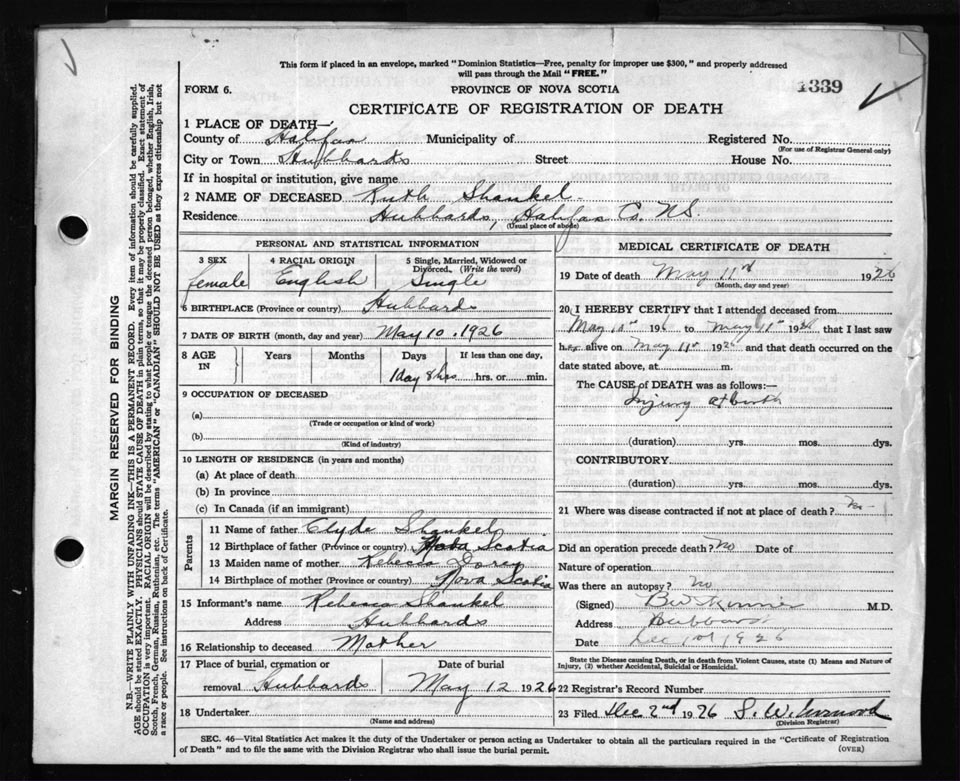 This form if placed in an envelope, marked "Dominion Statistics—Free, penalty for improper use $300," and properly addressed
will pass through the Mail "FREE."
FORM 6.
PROVINCE OF NOVA SCOTIA
1339
CERTIFICATE OF REGISTRATION OF DEATH
1 PLACE OF DEATH—
County of Halifax Municipality of Registered No.
(For use of Registrar General only)
City or Town Hubbards Street House No.
If in hospital or institution, give name
2 NAME OF DECEASED Ruth Shankel
Residence Hubbards, Halifax Co. N.S.
(Usual place of abode)
PERSONAL AND STATISTICAL INFORMATION
3 SEX
female
4 RACIAL ORIGIN
English
5 Single, Married, Widowed or
Divorced. (Write the word)
Single
6 BIRTHPLACE (Province or country) Hubbards
7 DATE OF BIRTH (month, day and year) May 10, 1926
8 AGE IN Years Months Days If less than one day,
1 day 8 hrs hrs. or min.
9 OCCUPATION OF DECEASED
(a)
(Trade or occupation or kind of work)
(b)
(Kind of industry)
10 LENGTH OF RESIDENCE (in years and months)
(a) At place of death
(b) In province
(c) In Canada (if an immigrant)
Parents
11 Name of father Clyde Shankel
12 Birthplace of father (Province or country) Nova Scotia
13 Maiden name of mother Rebecca Dorey
14 Birthplace of mother (Province or country) Nova Scotia
15 Informant's name Rebecca Shankel
Address Hubbards
16 Relationship to deceased Mother
17 Place of burial, cremation or Date of burial
removal Hubbards May 12 1926
18 Undertaker
(Name and address)
MEDICAL CERTIFICATE OF DEATH
19 Date of death May 11th 1926
(Month, day and year)
20 I HEREBY CERTIFY that I attended deceased from
May 10th 1926 to May 11th 1926 that I last saw
her alive on May 11th 1926 and that death occurred on the
date stated above, at m.
The CAUSE of DEATH was as follows:—
Injury at birth
(duration) yrs. mos. dys.
CONTRIBUTORY
(duration) yrs. mos. dys.
21 Where was disease contracted if not at place of death?
Did an operation precede death? No Date of
Nature of operation
Was there an autopsy? no
(Signed) M.D.
Address Hubbards
Date Dec 1st 1926
State the Disease causing Death, or in death from Violent Causes, state (1) Means and Nature of
Injury, (2) whether Accidental, Suicidal or Homicidal.
22 Registrar's Record Number
23 Filed Dec 2nd 1926 S. W.
(Division Registrar)
SEC. 46—Vital Statistics Act makes it the duty of the Undertaker or person acting as Undertaker to obtain all the particulars required in the "Certificate of Registration
of Death" and to file the same with the Division Registrar who shall issue the burial permit.
(OVER)
MARGIN RESERVED FOR BINDING
N.B.—WRITE PLAINLY WITH UNFADING INK—THIS IS A PERMANENT RECORD. Every item of information should be carefully supplied.
AGE should be stated EXACTLY. PHYSICIANS should STATE CAUSE OF DEATH in plain terms, so that it may be properly classified. Exact statement of
OCCUPATION is very important. RACIAL ORIGIN will be described by stating to what people or tongue the deceased person belonged, whether English, Irish,
Scotch, French, German, Russian, Ruthenian, etc. The terms "AMERICAN" or "CANADIAN" SHOULD NOT BE USED as they express citizenship but not
a race or people. See instructions on back of Certificate.